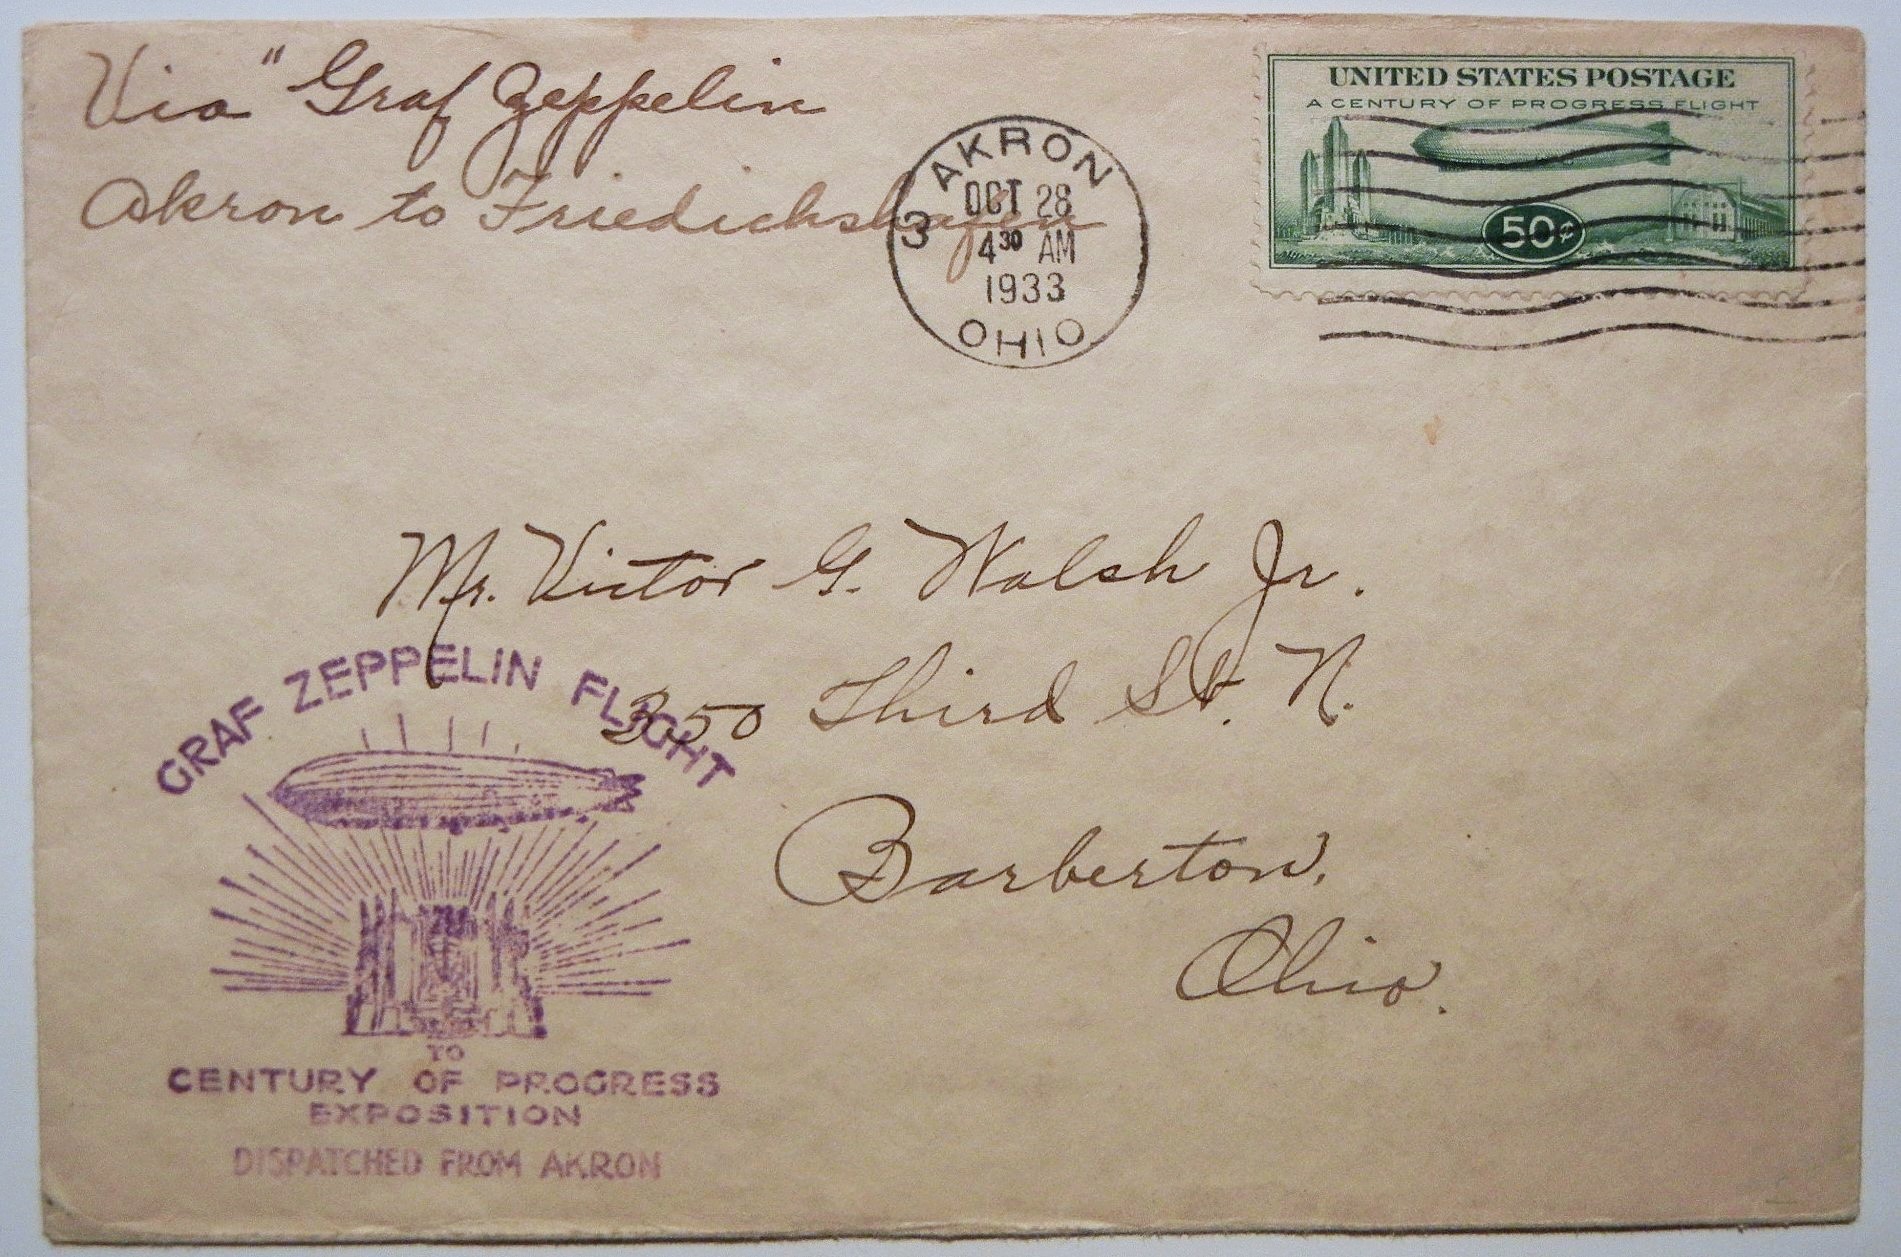 Via "Graf Zeppelin
Akron to Friedichshafen
AKRON
OCT 28
3
4 30 AM
1933
OHIO
UNITED STATES POSTAGE
A CENTURY OF PROGRESS FLIGHT
50¢
Mr. Victor G. Walsh Jr.
350 Third St. N.
Barberton,
Ohio.
GRAF ZEPPELIN FLIGHT
TO
CENTURY OF PROGRESS
EXPOSITION
DISPATCHED FROM AKRON